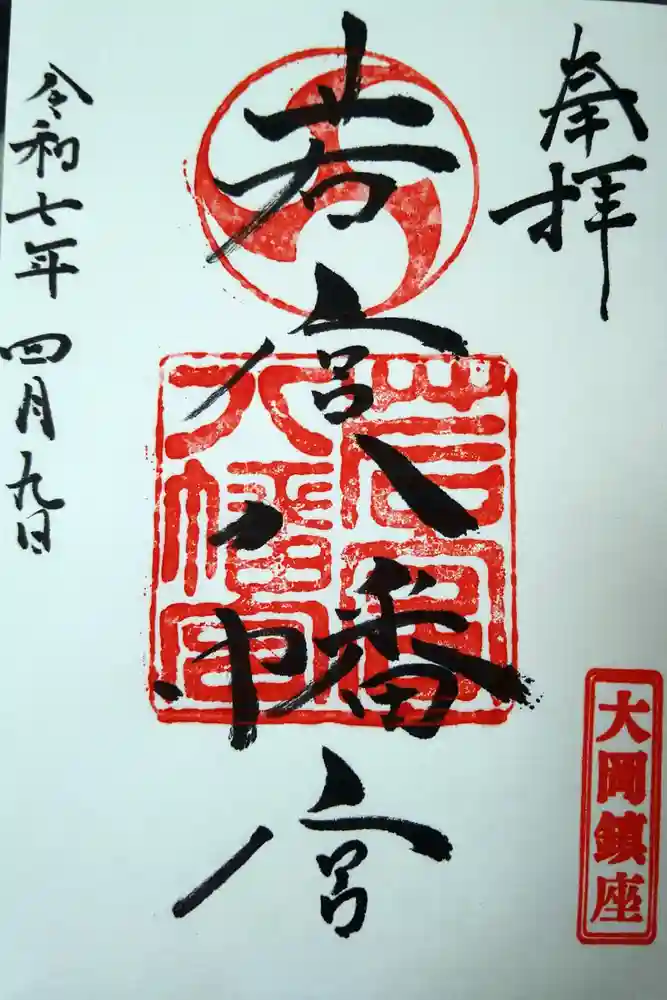 奉拝
大岡鎮座
若宮八幡宮
若宮
八幡宮
令和七年四月九日